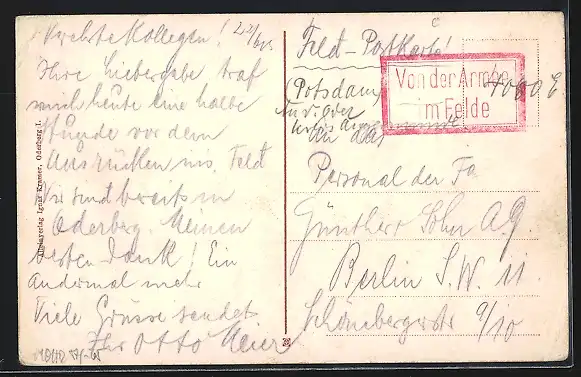 Werte Kollegen! 22/6 15
Ihre Liebergabe traf
mich heute eine halbe
Stunde vor dem
Ausrücken ins Feld
Wir sind bereits in
Oderberg. Meinen
besten Dank! Ein
andermal mehr
Viele Grüsse sendet
Ihr Otto Meier
Ignaz Kramer, Oderberg I.
Feld-Postkarte!
(Potsdam)
Von der Armee
im Felde
An das
Personal der Fa
Günther & Sohn A.G.
Berlin S.W. 11
Schönebergerstr 9/10